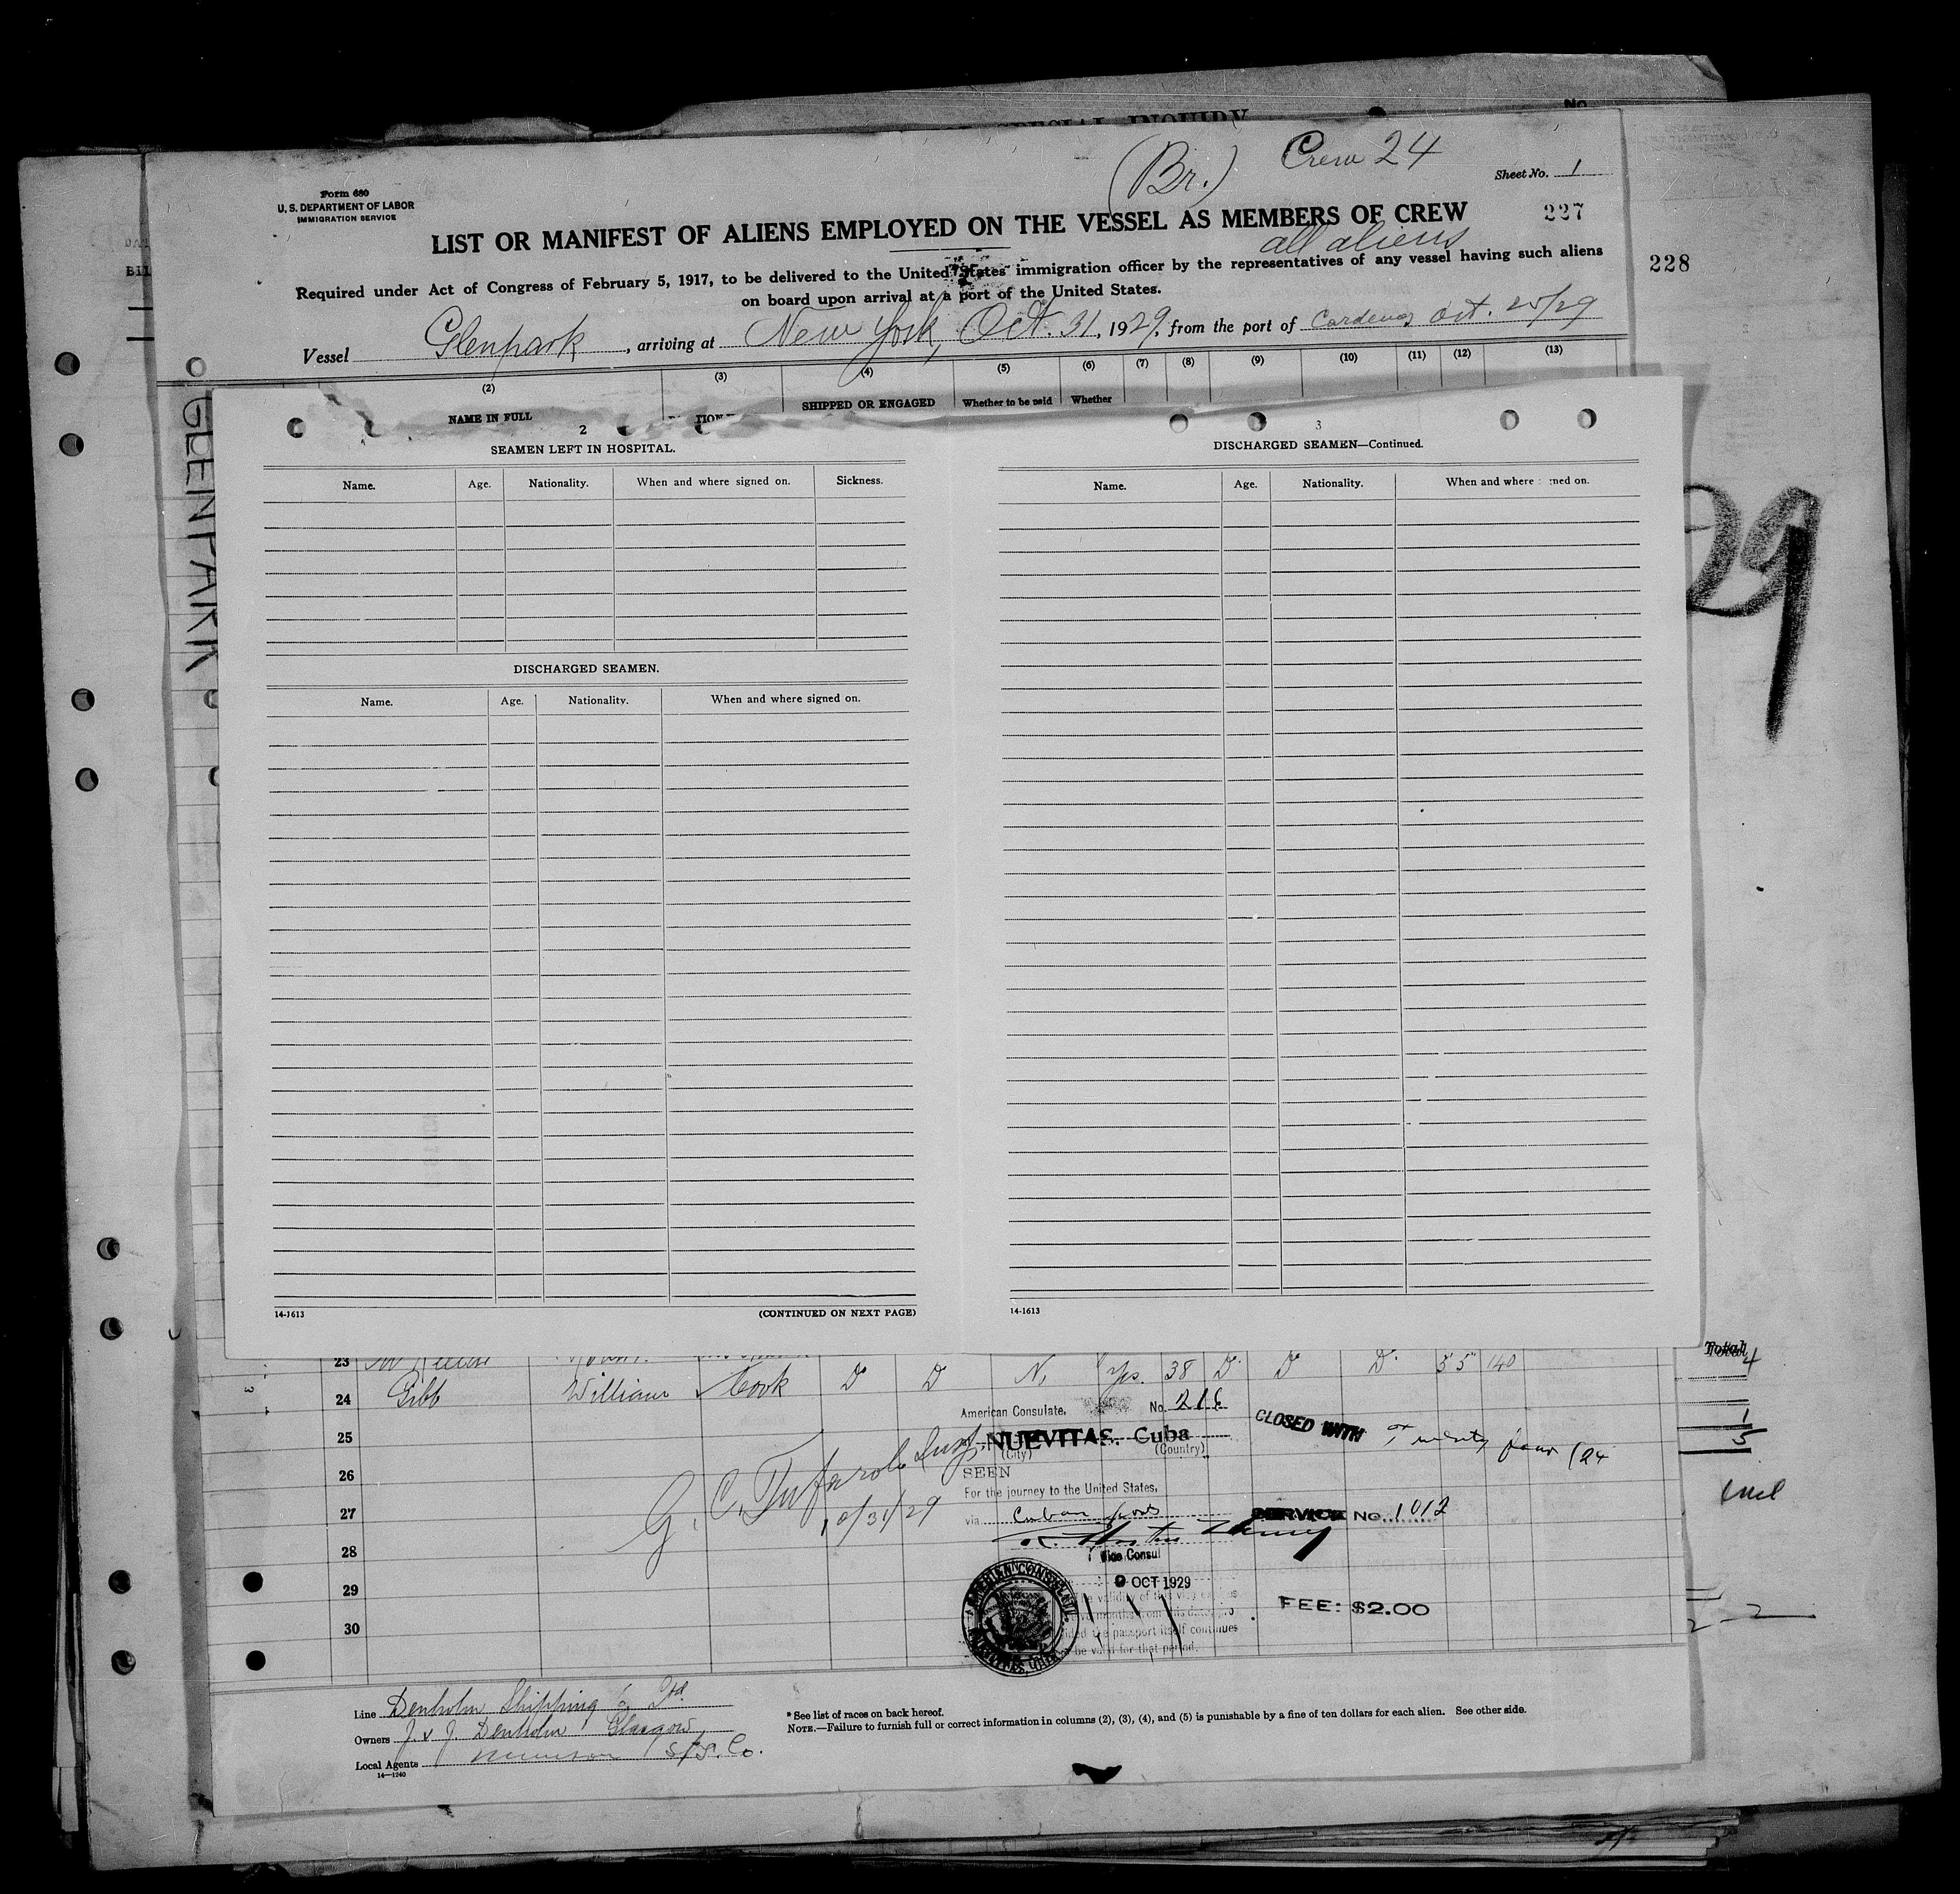 SPECIAL INQUIRY
No.
(Br.) Crew 24
Sheet No. 1
Form 680
U. S. DEPARTMENT OF LABOR
IMMIGRATION SERVICE
LIST OR MANIFEST OF ALIENS EMPLOYED ON THE VESSEL AS MEMBERS OF CREW
227
all aliens
228
Required under Act of Congress of February 5, 1917, to be delivered to the United States immigration officer by the representatives of any vessel having such aliens
on board upon arrival at a port of the United States.
Vessel Glenpark, arriving at New York, Oct. 31, 1929, from the port of Cardenas Oct. 25/29
(2) (3) (4) (5) (6) (7) (8) (9) (10) (11) (12) (13)
NAME IN FULL SHIPPED OR ENGAGED Whether to be paid Whether
GLENPARK
29
2
SEAMEN LEFT IN HOSPITAL.
Name. Age. Nationality. When and where signed on. Sickness.
DISCHARGED SEAMEN.
Name. Age. Nationality. When and where signed on.
14-1613 (CONTINUED ON NEXT PAGE)
3
DISCHARGED SEAMEN—Continued.
Name. Age. Nationality. When and where ned on.
14-1613
23
24 Gibb William Cook D D N. Yes. 38 D D D 55 140
25
26
27
28
29
30
Total
4
1
5
American Consulate. No. 216
NUEVITAS, Cuba
(City) (Country)
SEEN
For the journey to the United States,
via Cuban ports
Vice Consul
9 OCT 1929
AMERICAN CONSULATE
the passport itself continues
be valid for that period.
CLOSED WITH Twenty four (24
SERVICE No. 1012
FEE: $2.00
10/31/29
Line Denholm Shipping Co Ltd.
Owners J. & J. Denholm Glasgow,
Local Agents Munson S/S. Co.
14—1240
* See list of races on back hereof.
NOTE.—Failure to furnish full or correct information in columns (2), (3), (4), and (5) is punishable by a fine of ten dollars for each alien. See other side.